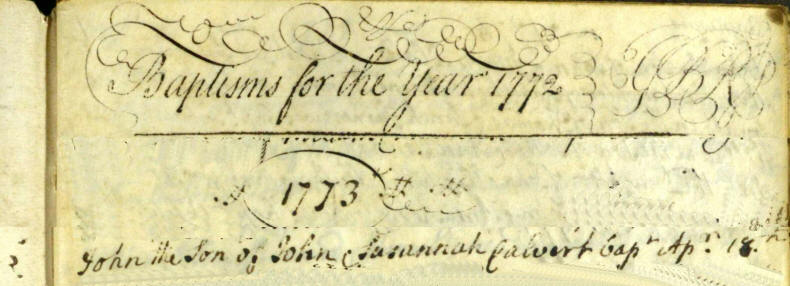 Baptisms for the Year 1772
1773
John the Son of John Susannah Calvert bapᵗ Apʳ 18.ᵗʰ